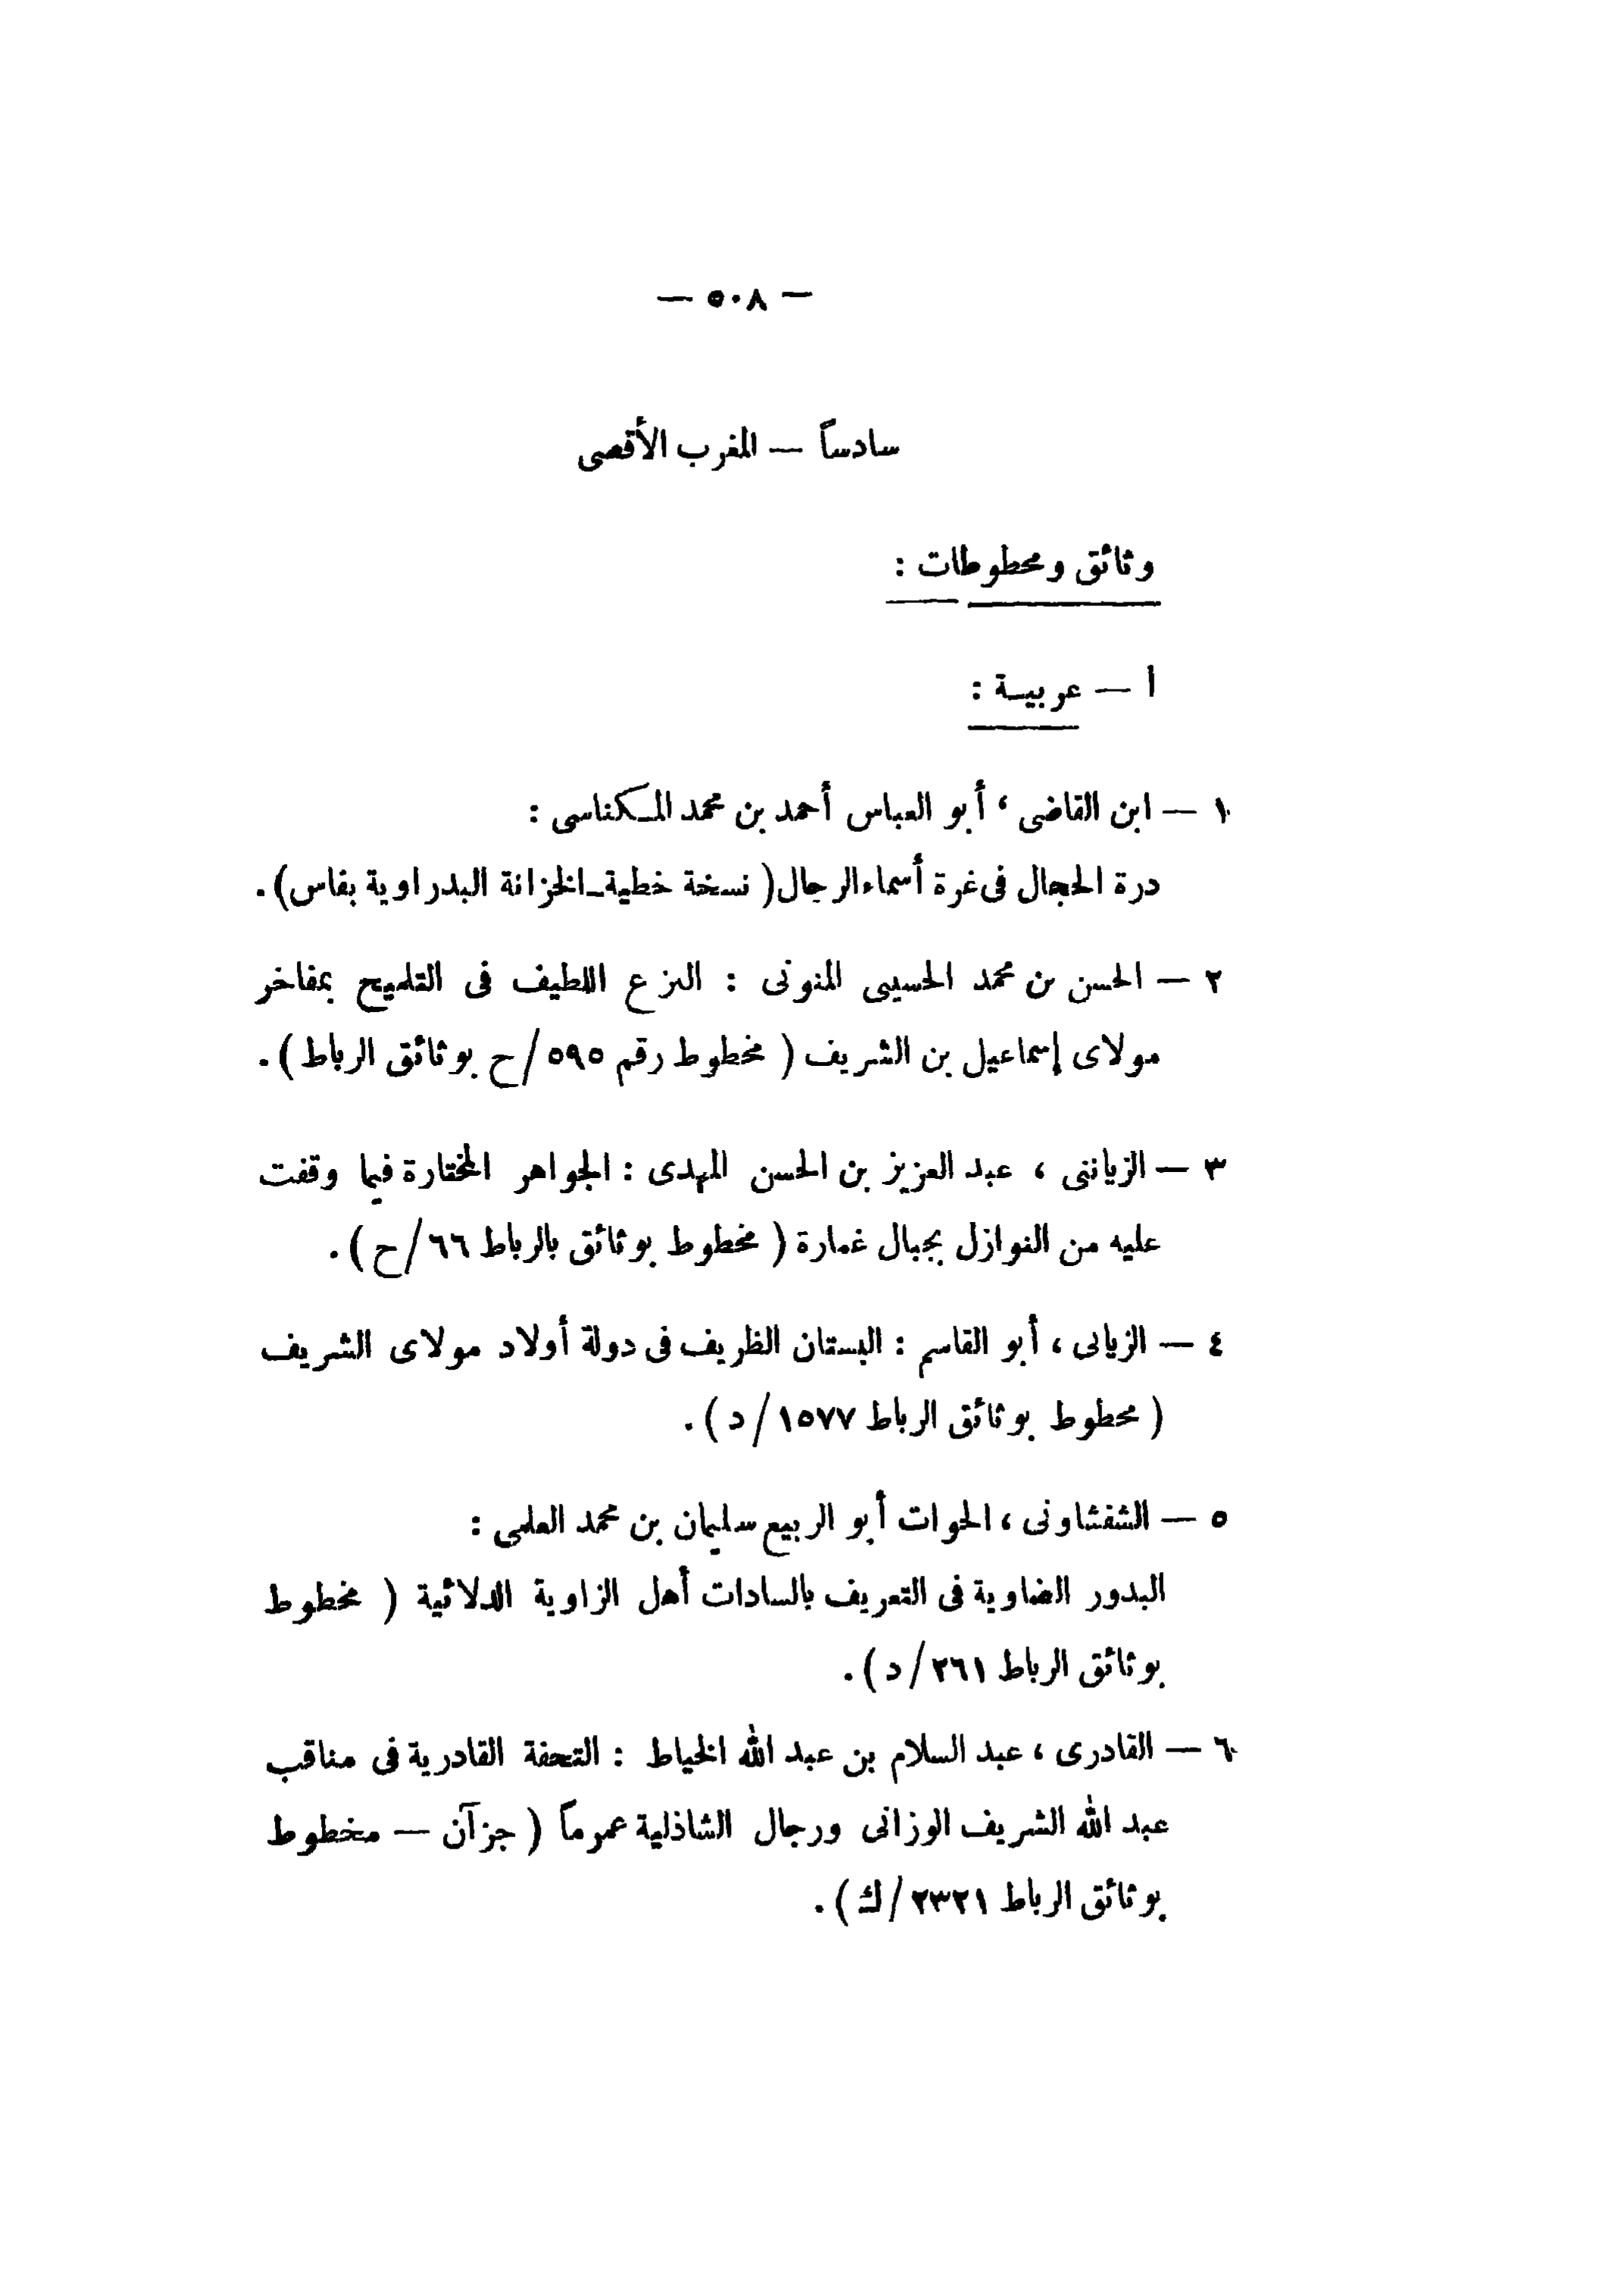 — ٥٠٨ —
سادساً — المغرب الأقصى
وثائق ومخطوطات :
أ — عربيـة :
١ — ابن القاضى ، أبو العباس أحمد بن محمد المـكناسى :
درة الحجال فى غرة أسماء الرجال ( نسخة خطية ــ الخزانة البدراوية بفاس ) .
٢ — الحسن بن محمد الحسينى المنونى : النزع اللطيف فى التلميح بمفاخر
مولاى إسماعيل بن الشريف ( مخطوط رقم ٥٩٥/ح بوثائق الرباط ) .
٣ — الزياتى ، عبد العزيز بن الحسن المهدى : الجواهر المختارة فيما وقفت
عليه من النوازل بجبال غمارة ( مخطوط بوثائق بالرباط ٦٦/ح ) .
٤ — الزيانى ، أبو القاسم : البستان الظريف فى دولة أولاد مولاى الشريف
( مخطوط بوثائق الرباط ١٥٧٧/د ) .
٥ — الشفشاونى ، الحوات أبو الربيع سليمان بن محمد العلمى :
البدور الضاوية فى التعريف بالسادات أهل الزاوية الدلائية ( مخطوط
بوثائق الرباط ٢٦١/د ) .
٦ — القادرى ، عبد السلام بن عبد الله الخياط : التحفة القادرية فى مناقب
عبد الله الشريف الوزانى ورجال الشاذلية عموماً ( جزآن — مخطوط
بوثائق الرباط ٢٣٢١/ك ) .